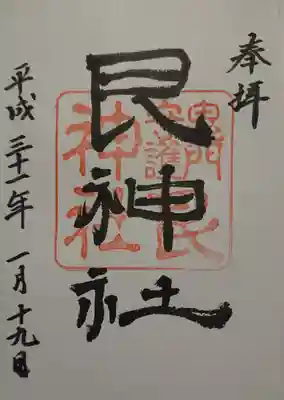 奉拝
艮神社
鬼門
守護
艮
神社
平成三十一年 一月十九日